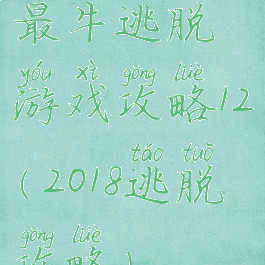 最牛逃脱
yóu xì gōng lüè
游戏攻略12
táo tuō
(2018逃脱
gōng lüè
攻略)